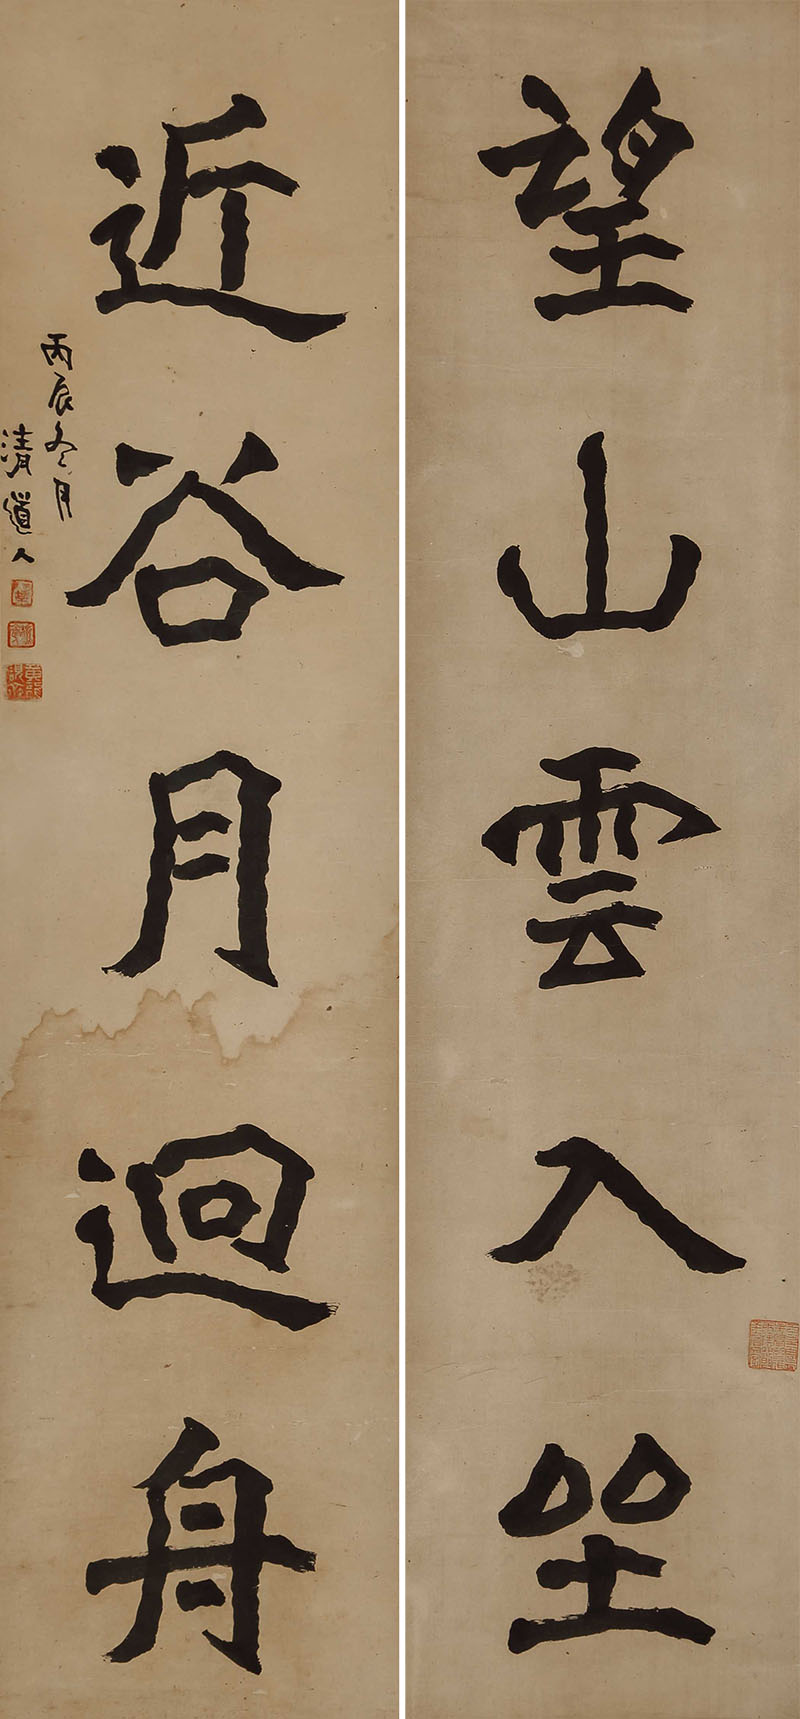 望山雲入坐
近谷月迴舟
丙辰冬月
清道人